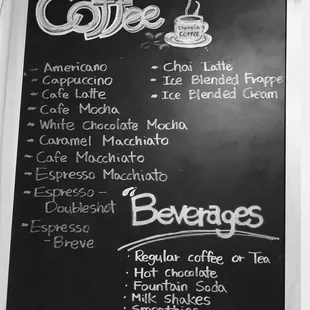 Coffee
COFFEE
~ Americano
~ Cappuccino
~ Cafe Latte
~ Cafe Mocha
~ White Chocolate Mocha
~ Caramel Macchiato
~ Cafe Macchiato
~ Espresso Macchiato
~ Espresso -
Doubleshot
~ Espresso
- Breve
~ Chai Latte
~ Ice Blended Frappe
~ Ice Blended Cream
Beverages
· Regular coffee or Tea
· Hot chocolate
· Fountain Soda
· Milk Shakes
· Smoothies